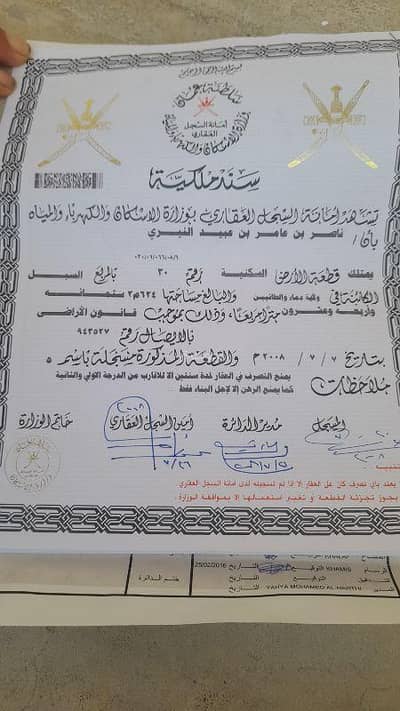 سلطنة عمان
وزارة الاسكان والكهرباء والمياه
أمانة السجل
العقاري
سند ملكية
تشهد امانة السجل العقاري بوزارة الاسكان والكهرباء والمياه
بأن / ناصر بن عامر بن عبيد النيري
يمتلك قطعة الأرض السكنية رقم ٣٠ بالمربع السيل
الكائنة في ولاية دماء والطائيين والبالغ مساحتها ٦٢٤م٢ ستمائه
واربعه وعشرون مترا مربعا وذلك بموجب قانون الأراضي
بالايصال رقم ٩٤٣٥٢٧
بتاريخ ٧ / ٧ / ٢٠٠٨ م والقطعة المذكورة مسجلة باسمه
ملاحظات: يمنع التصرف في العقار لمدة سنتين الا للاقارب من الدرجة الاولي والثانية
كما يمنع الرهن إلا لإجل البناء فقط
المسجل مدير الدائرة أمين السجل العقاري خاتم الوزارة
يعتد بأي تصرف كان على العقار إلا اذا تم تسجيله لدى امانة السجل العقاري
يجوز تجزئة القطعة و تغيير استعمالها إلا بموافقة الوزارة .
الرسام KHAMIS التوقيع التاريخ 25/02/2016
التوقيع التاريخ
المدير YAHYA MOHAMED AL-HARTHI ختم الدائرة